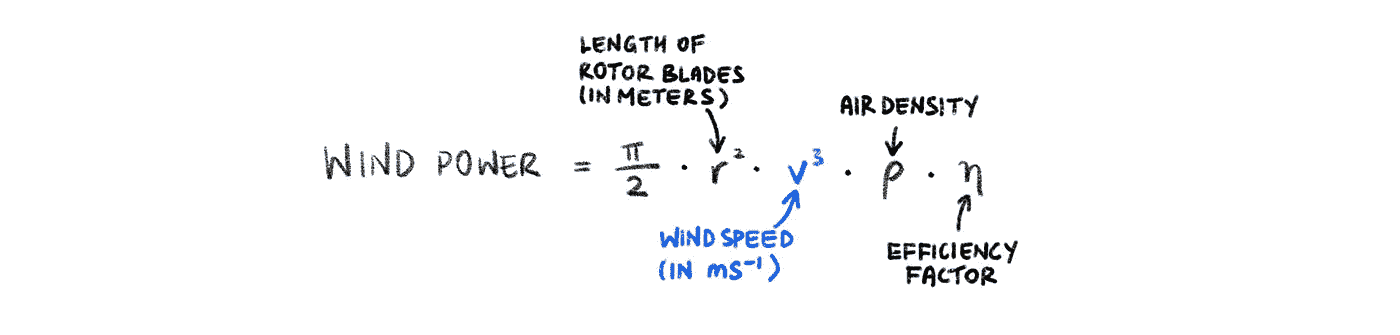 LENGTH OF
ROTOR BLADES
(IN METERS)
AIR DENSITY
WIND POWER = π/2 · r² · v³ · ρ · η
WIND SPEED
(IN ms⁻¹)
EFFICIENCY
FACTOR